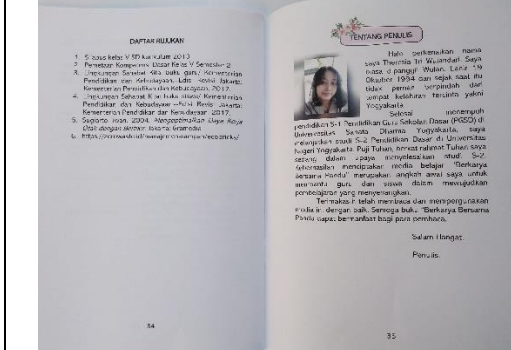 DAFTAR RUJUKAN
1. Silabus kelas V SD kurikulum 2013
2. Pemetaan Kompetensi Dasar Kelas V Semester 2
3. Lingkungan Sahabat Kita buku guru/ Kementerian
Pendidikan dan Kebudayaan. Edisi Revisi Jakarta:
Kementerian Pendidikan dan Kebudayaan, 2017.
4. Lingkungan Sahabat Kita buku siswa/ Kementerian
Pendidikan dan Kebudayaan. Edisi Revisi Jakarta:
Kementerian Pendidikan dan Kebudayaan, 2017.
5. Sugiarto, Ivan. 2004. Mengoptimalkan Daya Kerja
Otak dengan Berfikir. Jakarta: Gramedia
6.
34
TENTANG PENULIS
Halo perkenalkan nama
saya Theresia Tri Wulandari. Saya
biasa dipanggil Wulan. Lahir 19
Oktober 1994 dan sejak saat itu
tidak pernah berpindah dari
tempat kelahiran tercinta yakni
Yogyakarta.
Selesai menempuh
pendidikan S-1 Pendidikan Guru Sekolah Dasar (PGSD) di
Universitas Sanata Dharma Yogyakarta, saya
melanjutkan studi S-2 Pendidikan Dasar di Universitas
Negeri Yogyakarta. Puji Tuhan, berkat rahmat Tuhan saya
sedang dalam upaya menyelesaikan studi S-2.
Keberhasilan menciptakan media belajar "Berkarya
Bersama Pandu" merupakan langkah awal saya untuk
membantu guru dan siswa dalam mewujudkan
pembelajaran yang menyenangkan.
Terimakasih telah membaca dan mempergunakan
media ini dengan baik. Semoga buku "Berkarya Bersama
Pandu dapat bermanfaat bagi para pembaca.
Salam Hangat,
Penulis.
35